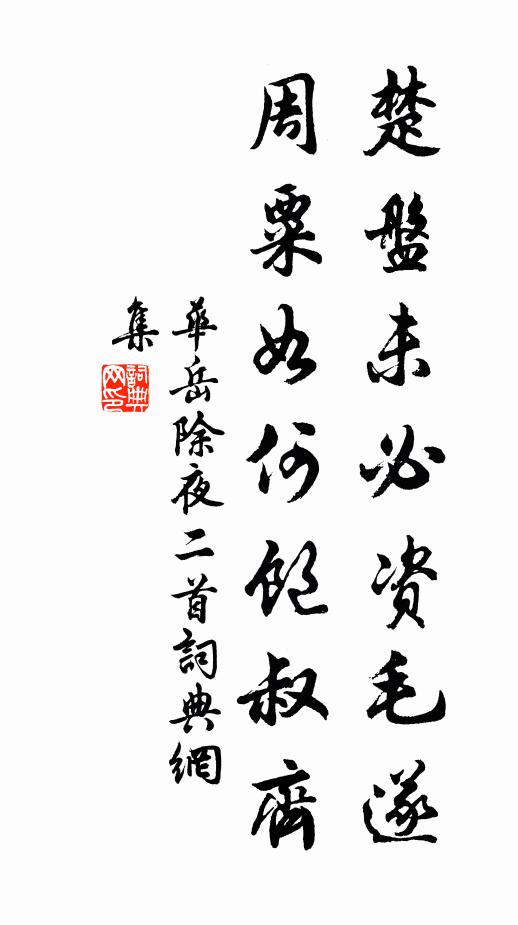 楚盤未必資毛遂
周粟如何飽叔齊
華岳除夜二首詞典網
集
詞典
网印